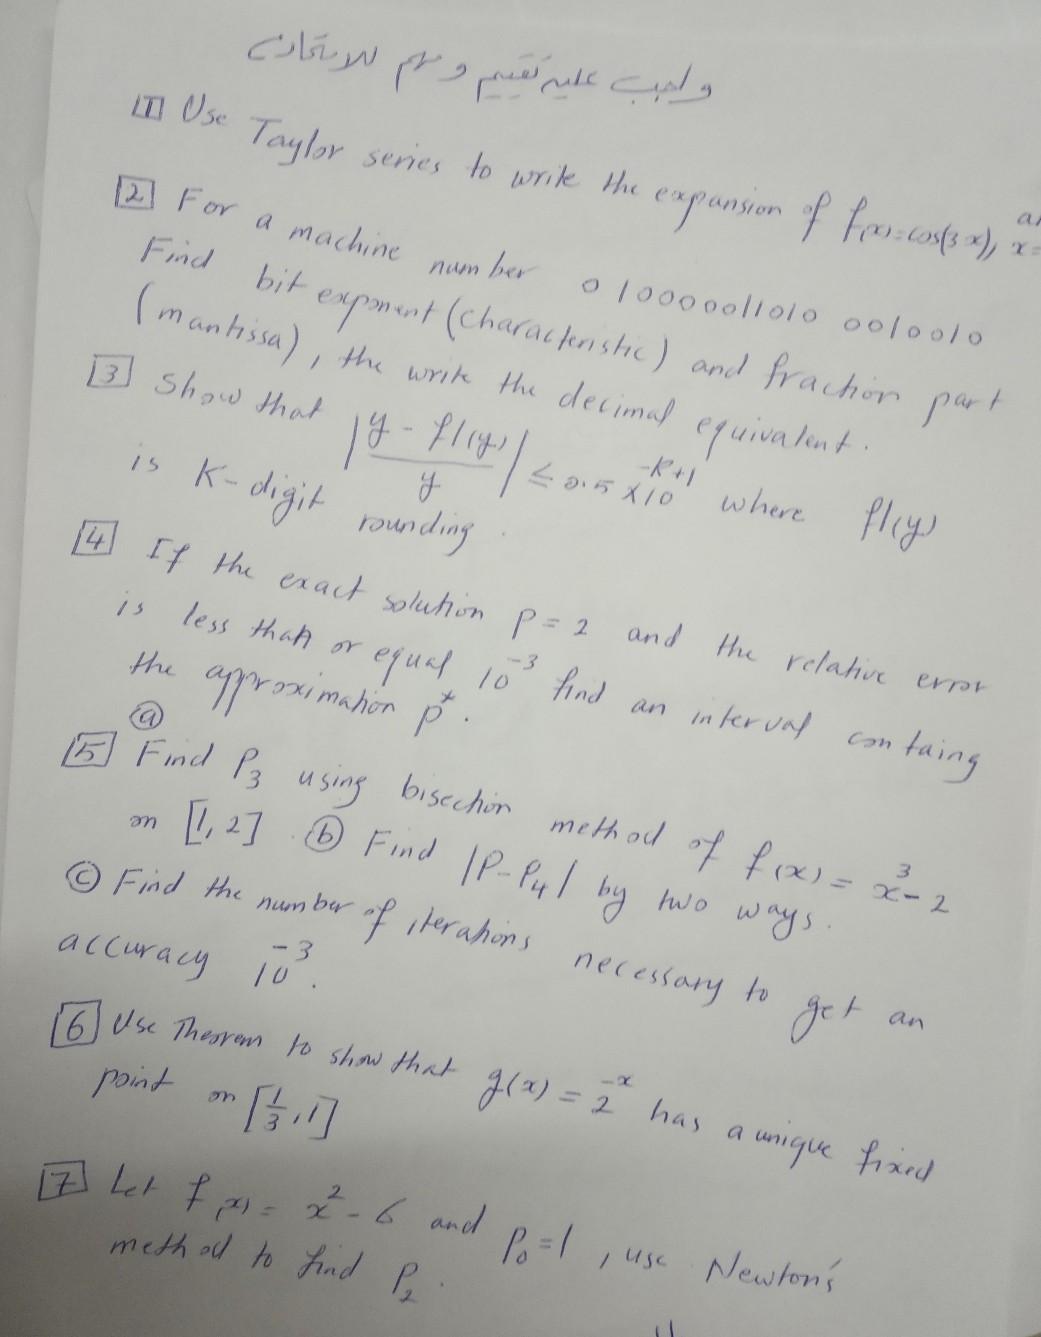 واجب عليه تقييم و مهم للامتحانات
1 Use Taylor series to write the expansion of f(x)=cos(3x), x=
2 For a machine number 0 10000011010 0010010
Find bit exponent (characteristic) and fraction part
(mantissa), the write the decimal equivalent.
3 Show that |y - fl(y) / y| ≤ 0.5 × 10^{-k+1} where fl(y)
is K-digit rounding.
4 If the exact solution p = 2 and the relative error
is less than or equal 10^{-3} find an interval containg
the approximation p*.
5 (a) Find P_3 using bisection method of f(x) = x^3 - 2
on [1, 2]. (b) Find |P - P_4| by two ways.
(c) Find the number of iterations necessary to get an
accuracy 10^{-3}.
6 Use Theorem to show that g(x) = 2^{-x} has a unique fixed
point on [1/3, 1]
7 Let f(x) = x^2 - 6 and p_0 = 1, use Newton's
method to find P_2.